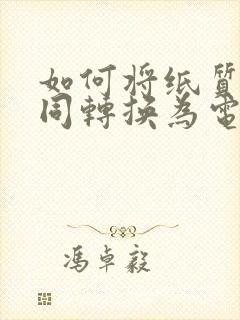 如何将纸質
同轉换為電
馮卓毅